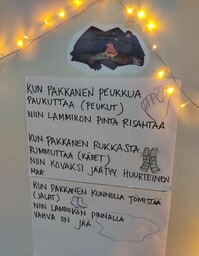 KUN PAKKANEN PEUKKUA
PAUKUTTAA (PEUKUT)
NIIN LAMMIKON PINTA RISAHTAA
KUN PAKKANEN RUKKASTA
RUMMUTTAA (KÄDET)
NIIN KOVAKSI JÄÄTYY HUURTEINEN
MAA
KUN PAKKANEN KUNNOLLA TÖMISTÄÄ
(JALAT)
NIIN LAMMIKON PINNALLA
VAHVA ON JÄÄ